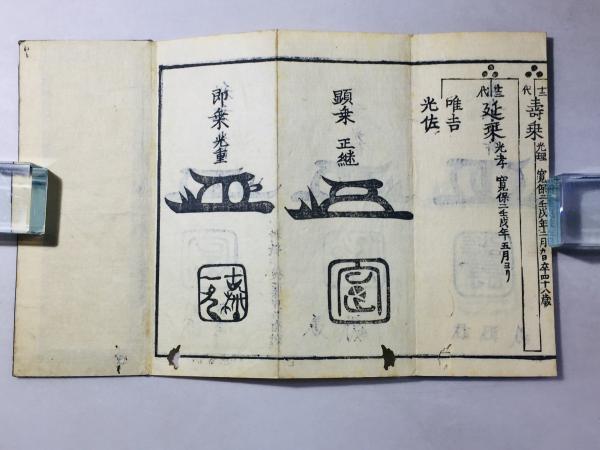 十二代 壽乗 光理 寛保二壬戌年二月九日卒四十八歳
十三代 延乗 光孝 寛保二壬戌年五月ヨリ
唯吉
光佐
顕乗 正継
即乗 光重